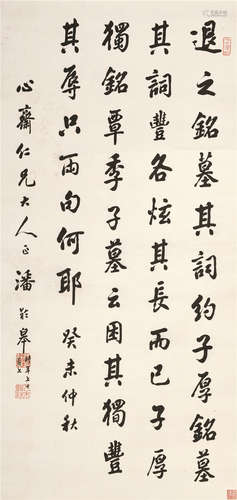 退之銘墓其詞約子厚銘墓
其詞豐各炫其長而已子厚
獨銘覃季子墓云困其獨豐
其辱只兩句何耶 癸未仲秋
心齋仁兄大人正 潘齡皋